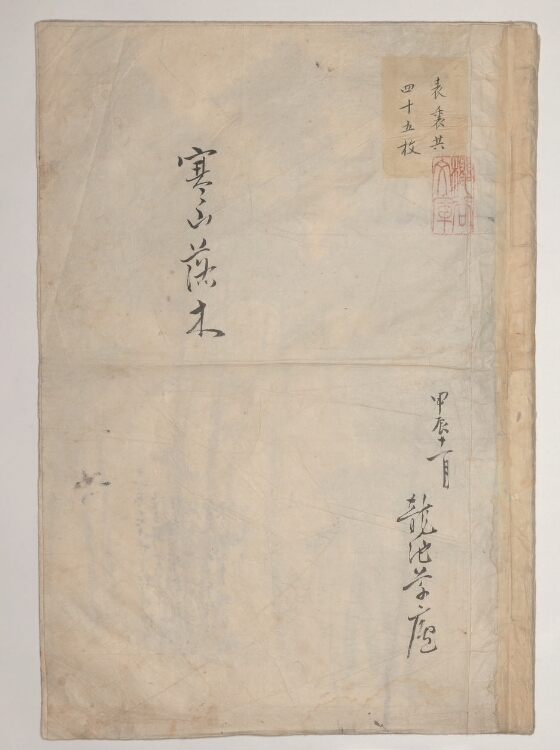 表裏共
四十五枚
寒山落木
甲辰十一月
龍池草廬